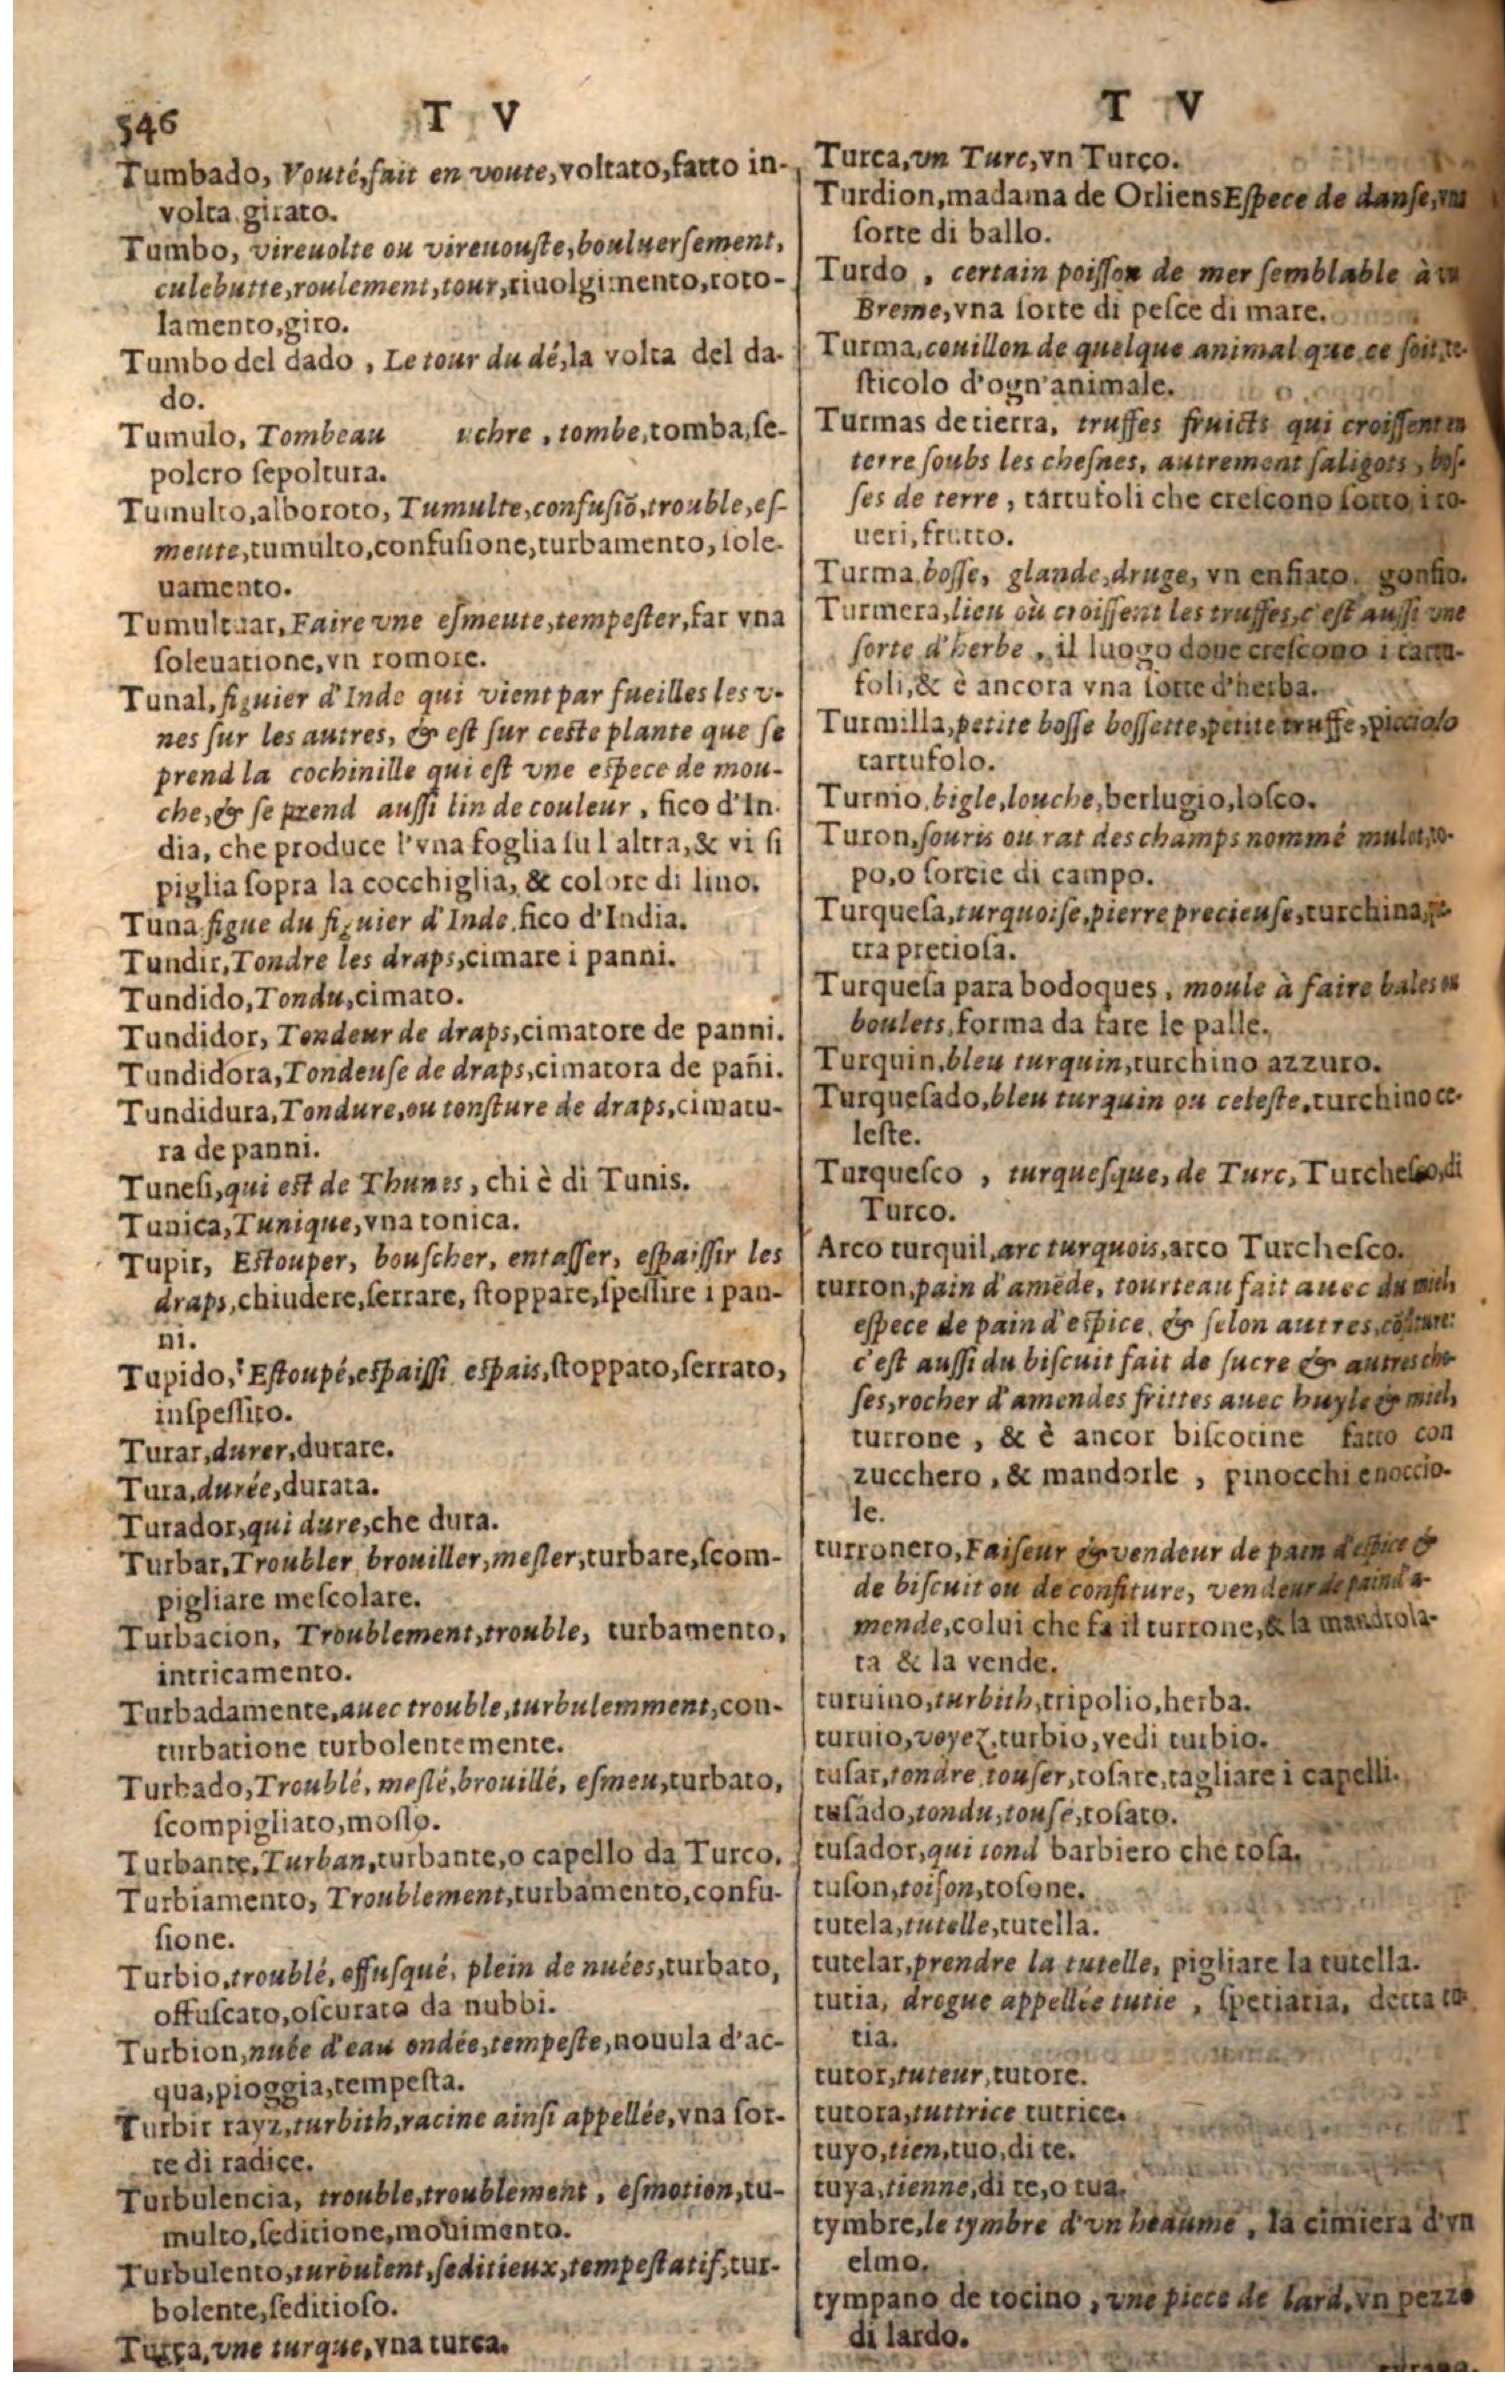 546 T V
Tumbado, Vouté, fait en voute, voltato, fatto in-
volta girato.
Tumbo, vireuolte ou vireuouſte, bouluerſement,
culebutte, roulement, tour, riuolgimento, roto-
lamento, giro.
Tumbo del dado, Le tour du dé, la volta del da-
do.
Tumulo, Tombeau chre, tombe, tomba, ſe-
polcro ſepoltura.
Tumulto, alboroto, Tumulte, confuſiõ, trouble, eſ-
meute, tumulto, confuſione, turbamento, ſole-
uamento.
Tumultuar, Faire vne eſmeute, tempeſter, far vna
ſoleuatione, vn romore.
Tunal, figuier d'Inde qui vient par fueilles les v-
nes ſur les autres, & eſt ſur ceſte plante que ſe
prend la cochinille qui eſt vne eſpece de mou-
che, & ſe prend auſſi lin de couleur, fico d'In-
dia, che produce l'vna foglia ſu l altra, & vi ſi
piglia ſopra la cocchiglia, & colore di lino.
Tuna figue du figuier d'Inde, fico d'India.
Tundir, Tondre les draps, cimare i panni.
Tundido, Tondu, cimato.
Tundidor, Tondeur de draps, cimatore de panni.
Tundidora, Tondeuſe de draps, cimatora de pañi.
Tundidura, Tondure, ou tonſture de draps, cimatu-
ra de panni.
Tuneſi, qui eſt de Thunes, chi è di Tunis.
Tunica, Tunique, vna tonica.
Tupir, Eſtouper, bouſcher, entaſſer, eſpaiſſir les
draps, chiudere, ſerrare, ſtoppare, ſpeſſire i pan-
ni.
Tupido, Eſtoupé, eſpaiſſi eſpais, ſtoppato, ſerrato,
inſpeſſito.
Turar, durer, durare.
Tura, durée, durata.
Turador, qui dure, che dura.
Turbar, Troubler brouiller, meſler, turbare, ſcom-
pigliare meſcolare.
Turbacion, Troublement, trouble, turbamento,
intricamento.
Turbadamente, auec trouble, turbulemment, con-
turbatione turbolentemente.
Turbado, Troublé, meſlé, brouillé, eſmeu, turbato,
ſcompigliato, moſſo.
Turbante, Turban, turbante, o capello da Turco.
Turbiamento, Troublement, turbamento, confu-
ſione.
Turbio, troublé, offuſqué, plein de nuées, turbato,
offuſcato, oſcurato da nubbi.
Turbion, nuée d'eau ondée, tempeſte, nouula d'ac-
qua, pioggia, tempeſta.
Turbit rayz, turbith, racine ainſi appellée, vna ſor-
te di radice.
Turbulencia, trouble, troublement, eſmotion, tu-
multo, ſeditione, mouimento.
Turbulento, turbulent, ſeditieux, tempeſtatif, tur-
bolente, ſeditioſo.
Turca, vne turque, vna turca.
T V
Turca, vn Turc, vn Turco.
Turdion, madama de Orliens Eſpece de danſe, vna
ſorte di ballo.
Turdo, certain poiſſon de mer ſemblable à vn
Breme, vna ſorte di peſce di mare.
Turma, couillon de quelque animal que ce ſoit, te-
ſticolo d'ogn'animale.
Turmas de tierra, truffes fruicts qui croiſſent en
terre ſoubs les cheſnes, autrement ſaligots, boſ-
ſes de terre, tartufoli che creſcono ſotto i ro-
ueri, frutto.
Turma boſſe, glande, druge, vn enfiato, gonfio.
Turmera, lieu où croiſſent les truffes, c'eſt auſſi vne
ſorte d'herbe, il luogo doue creſcono i tartu-
foli, & è ancora vna ſorte d'herba.
Turmilla, petite boſſe boſſette, petite truffe, picciolo
tartufolo.
Turnio, bigle, louche, berlugio, loſco.
Turon, ſouris ou rat des champs nommé mulot, to-
po, o ſorcie di campo.
Turqueſa, turquoiſe, pierre precieuſe, turchina, pe-
tra pretioſa.
Turqueſa para bodoques, moule à faire bales ou
boulets, forma da fare le palle.
Turquin, bleu turquin, turchino azzuro.
Turqueſado, bleu turquin ou celeſte, turchino ce-
leſte.
Turqueſco, turqueſque, de Turc, Turcheſco, di
Turco.
Arco turquil, arc turquois, arco Turcheſco.
turron, pain d'amẽde, tourteau fait auec du miel,
eſpece de pain d'eſpice, & ſelon autres, cõfiture:
c'eſt auſſi du biſcuit fait de ſucre & autres cho-
ſes, rocher d'amendes frittes auec huyle & miel,
turrone, & è ancor biſcotine fatto con
zucchero, & mandorle, pinocchi e noccio-
le.
turronero, Faiſeur & vendeur de pain d'eſpice &
de biſcuit ou de confiture, vendeur de pain d'a-
mende, colui che fa il turrone, & la mandrola-
ta & la vende.
turuino, turbith, tripolio, herba.
turuio, voyez, turbio, vedi turbio.
tuſar, tondre touſer, toſare, tagliare i capelli.
tuſado, tondu, touſé, toſato.
tuſador, qui tond barbiero che toſa.
tuſon, toiſon, toſone.
tutela, tutelle, tutella.
tutelar, prendre la tutelle, pigliare la tutella.
tutia, drogue appellée tutie, ſpetiaria, detta tu-
tia.
tutor, tuteur, tutore.
tutora, tuttrice tutrice.
tuyo, tien, tuo, di te.
tuya, tienne, di te, o tua.
tymbre, le tymbre d'vn heaume, la cimiera d'vn
elmo.
tympano de tocino, vne piece de lard, vn pezzo
di lardo.